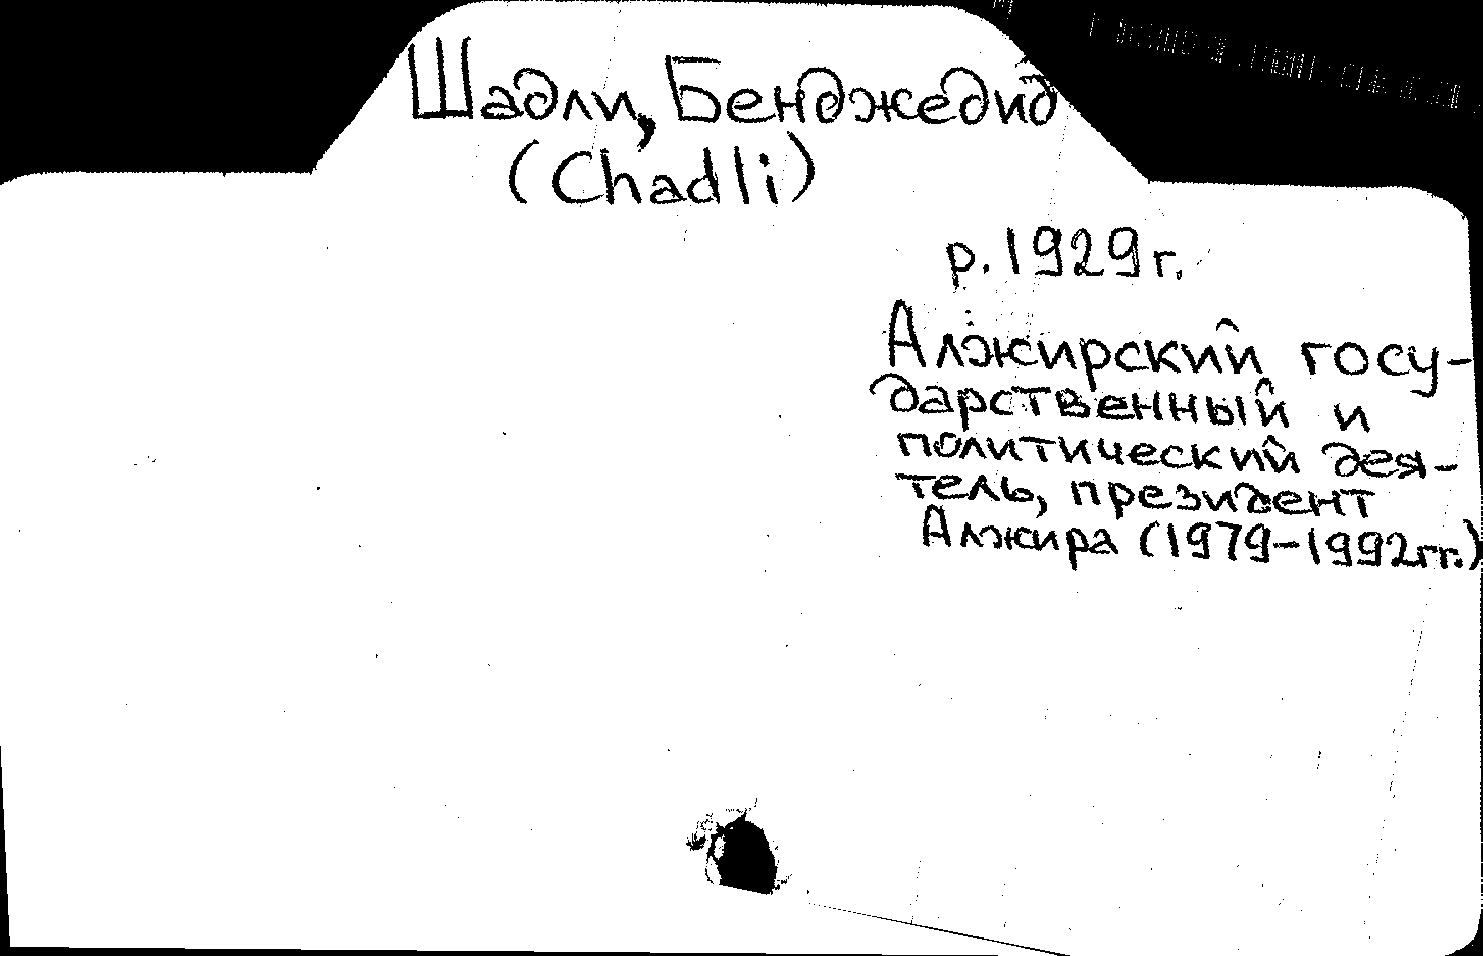 Шадли, Бенджедид
(Chadli)
р. 1929 г.
Алжирский госу-
дарственный и
политический дея-
тель, президент
Алжира (1979-1992гг.)